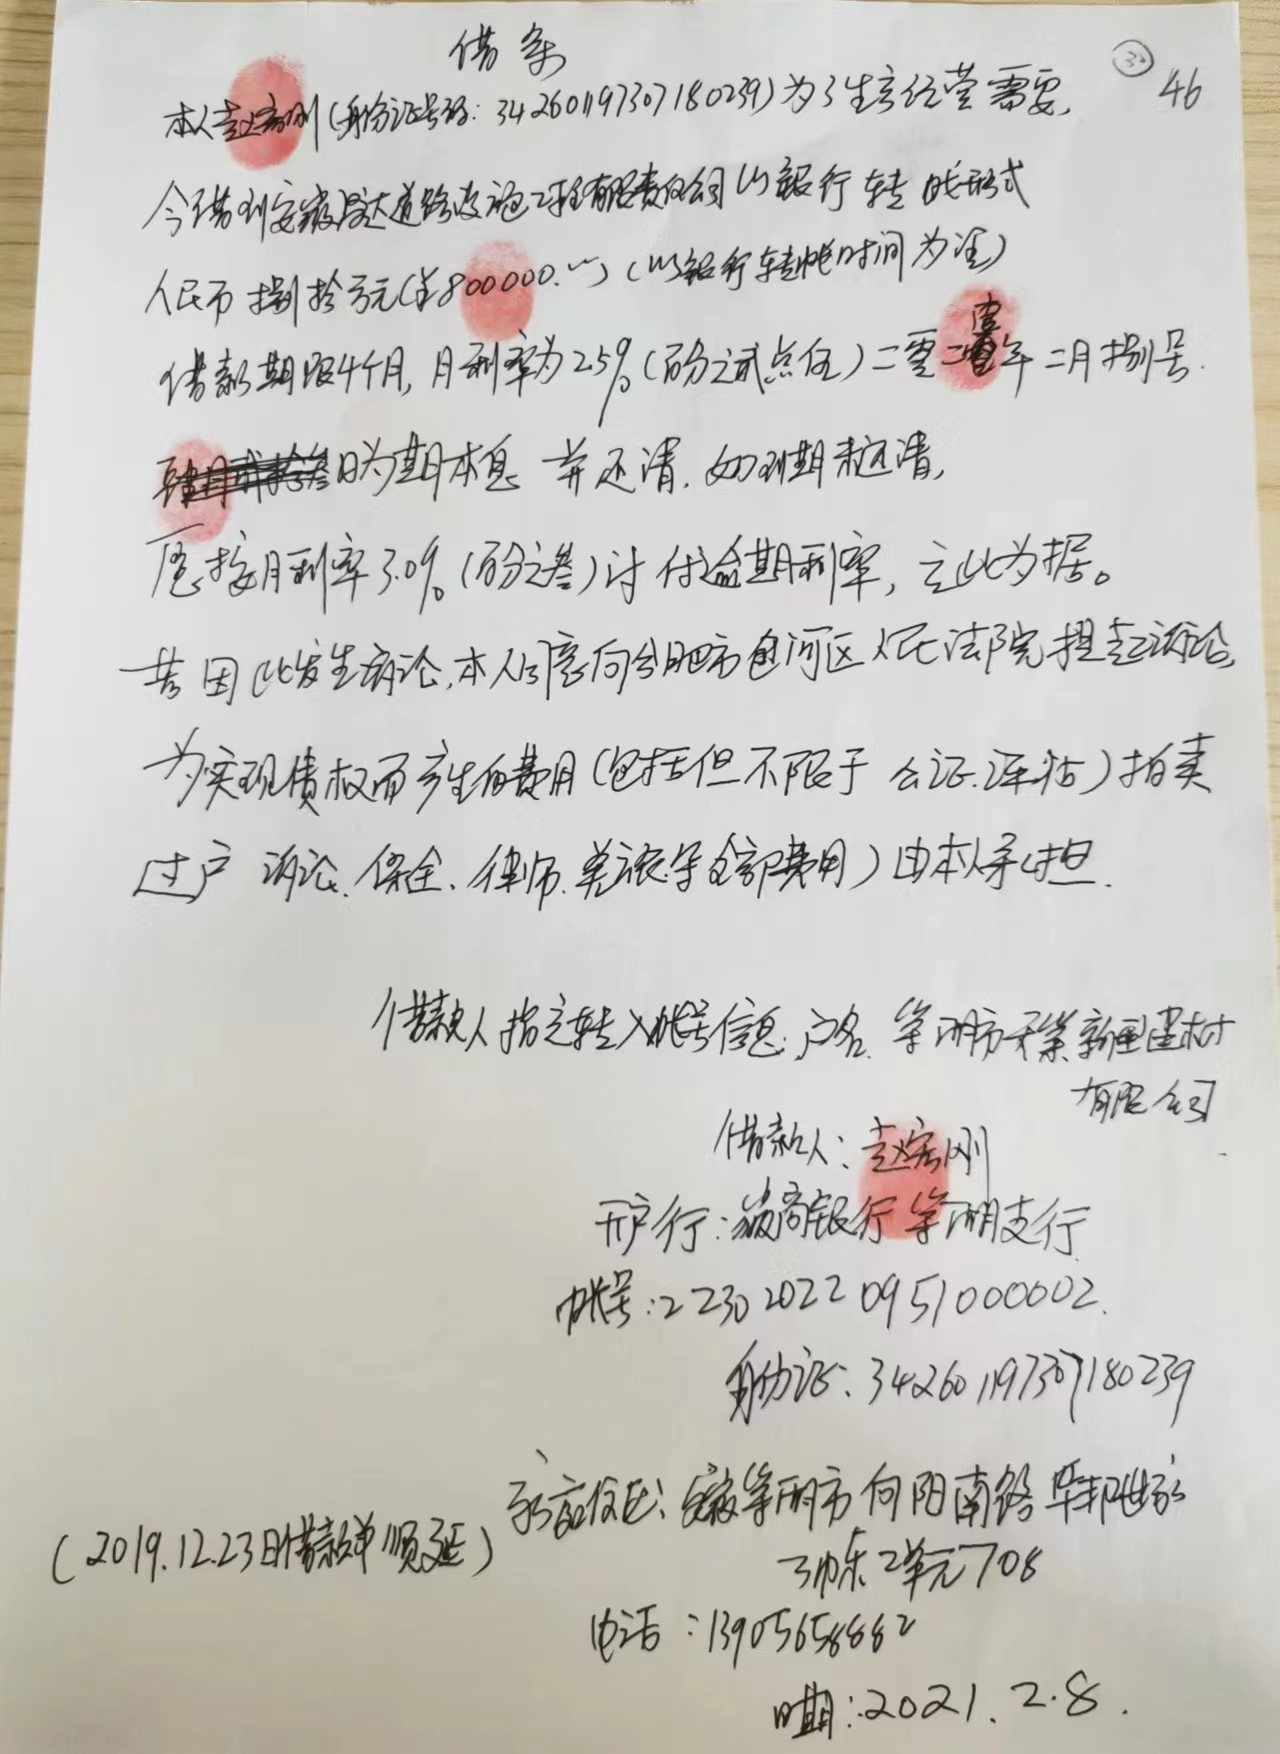 借条
㉜ 46
本人赵宏刚(身份证号码:342601197307180239)为了生产经营需要,
今借到安徽 大道路设施工程有限责任公司以银行转帐形式
人民币捌拾万元(¥800000.00)(以银行转帐时间为准)
借款期限4个月,月利率为2.5%(百分之贰点伍)二零二壹年二月捌号
日为期本息并还清.如到期未还清,
愿按月利率3.0%(百分之叁)计付逾期利率,立此为据。
若因此发生诉讼,本人同意向合肥市包河区人民法院提起诉讼,
为实现债权而产生的费用(包括但不限于公证.评估)拍卖
过户 诉讼、保全、律师、差旅等全部费用)由本人承担.
借款人指定转入帐号信息:户名: 市天 新型建材
有限公司
借款人:赵宏刚
开户行:徽商银行 支行
帐号:223020220951000002.
身份证:342601197307180239
家庭住址:安徽 市向阳南路华邦世家
3幢东2单元708
(2019.12.23日借款单顺延)
电话:13905658882
日期:2021.2.8.